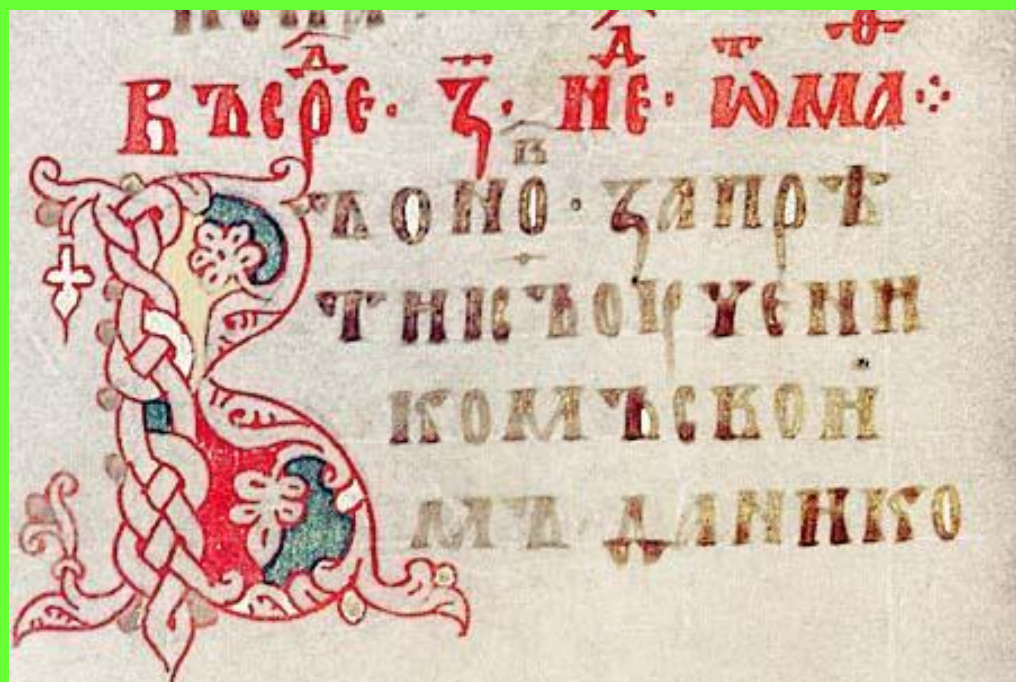 ВЪСРЕⷣ· З҃· НЕⷣ· ѾМАѲ ⁘
ВЪОНОⷡ· ЗАПРѢ
ТИІСЪОУЧЕНИ
КОМЪСВОИ
МЪ· ДАНИКО